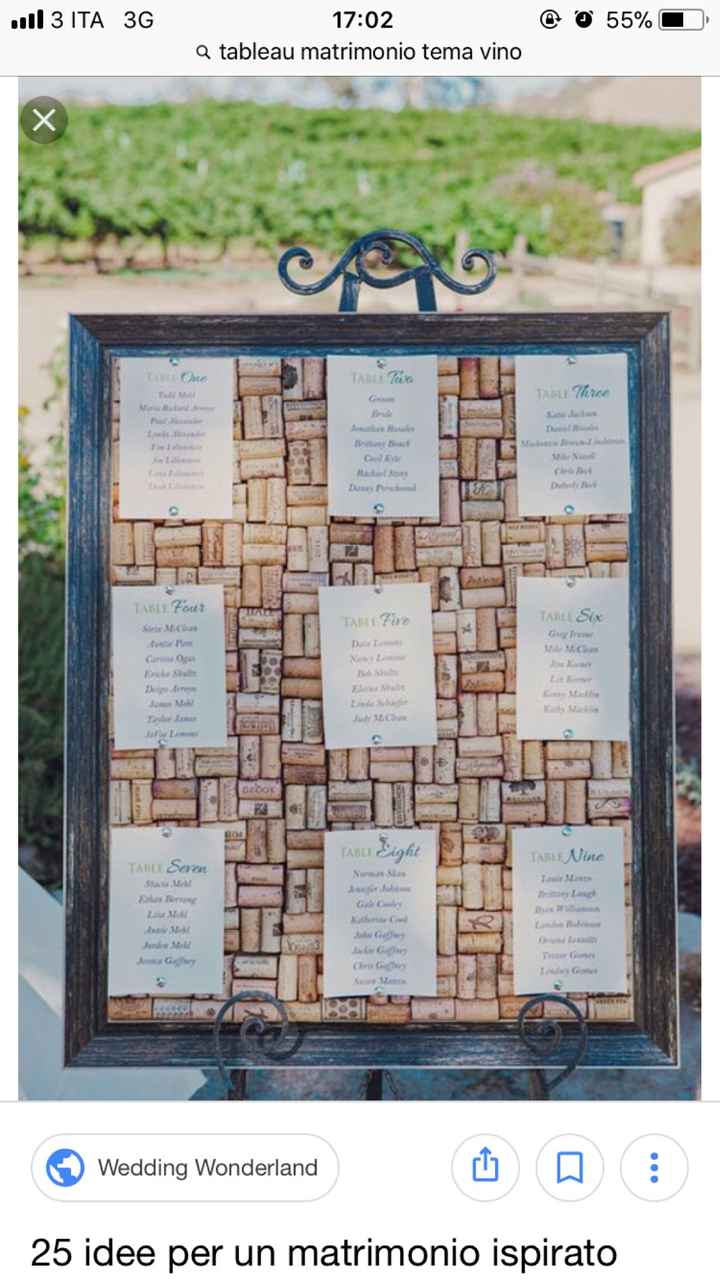 3 ITA 3G 17:02 55%
tableau matrimonio tema vino
TABLE One
Todd Mehl
Paul Alexander
Linda Alexander
TABLE Two
Groom
Bride
Jonathan Rosales
Brittany Beach
Cecil Kyle
Rachael Story
Danny Perschonok
TABLE Three
Katie Jackson
Daniel Rosales
Mike Nicoll
Chris Beck
Duberly Beck
TABLE Four
Steve McClean
Auntie Pam
Carissa Ogas
Ericka Shultz
Deigo Arroyo
James Mehl
Taylor James
JaVae Lemons
TABLE Five
Dale Lemons
Nancy Lemons
Bob Shultz
Elaine Shultz
Linda Schaefer
Judy McClean
TABLE Six
Greg Irvine
Mike McClean
Jim Korner
Liz Korner
Kenny Macklin
Kathy Macklin
TABLE Seven
Stacia Mehl
Ethan Berrong
Lisa Mehl
Annie Mehl
Jorden Mehl
Jessica Gaffney
TABLE Eight
Norman Skau
Jennifer Johnson
Gale Cooley
Katherine Cook
John Gaffney
Jackie Gaffney
Chris Gaffney
Susan Manzo
TABLE Nine
Louie Manzo
Brittany Lough
Ryan Williamson
Landon Robinson
Oriana Iannitti
Trevor Gomes
Lindsey Gomes
Wedding Wonderland
25 idee per un matrimonio ispirato